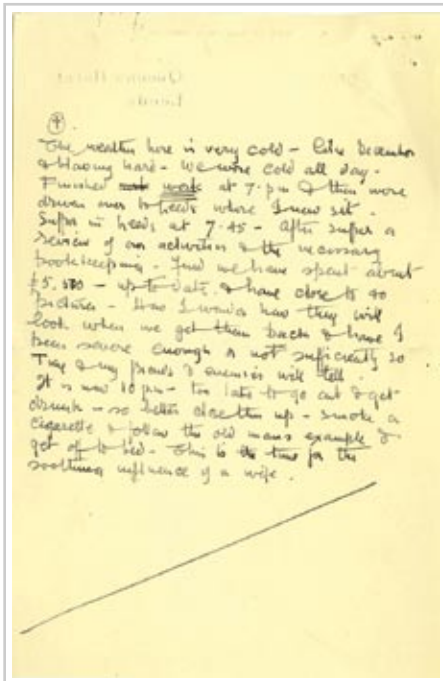 Queens Hotel
Leeds
4
The weather here is very cold - like December
& blowing hard - We were cold all day -
Finished work at 7. pm & then were
driven over to Leeds where I now sit -
Supper in Leeds at 7.45 - After supper a
review of our activities & the necessary
bookkeeping - find we have spent about
£5,500 - up to date & have close to 40
pictures - How I wonder how they will
look when we get them back & have I
been severe enough or not sufficiently so
Time & my friends & enemies will tell -
It is now 10 pm - too late to go out & get
drunk - so better close this up - smoke a
cigarette & follow the old mans example &
get off to bed - This is the time for the
soothing influence of a wife.